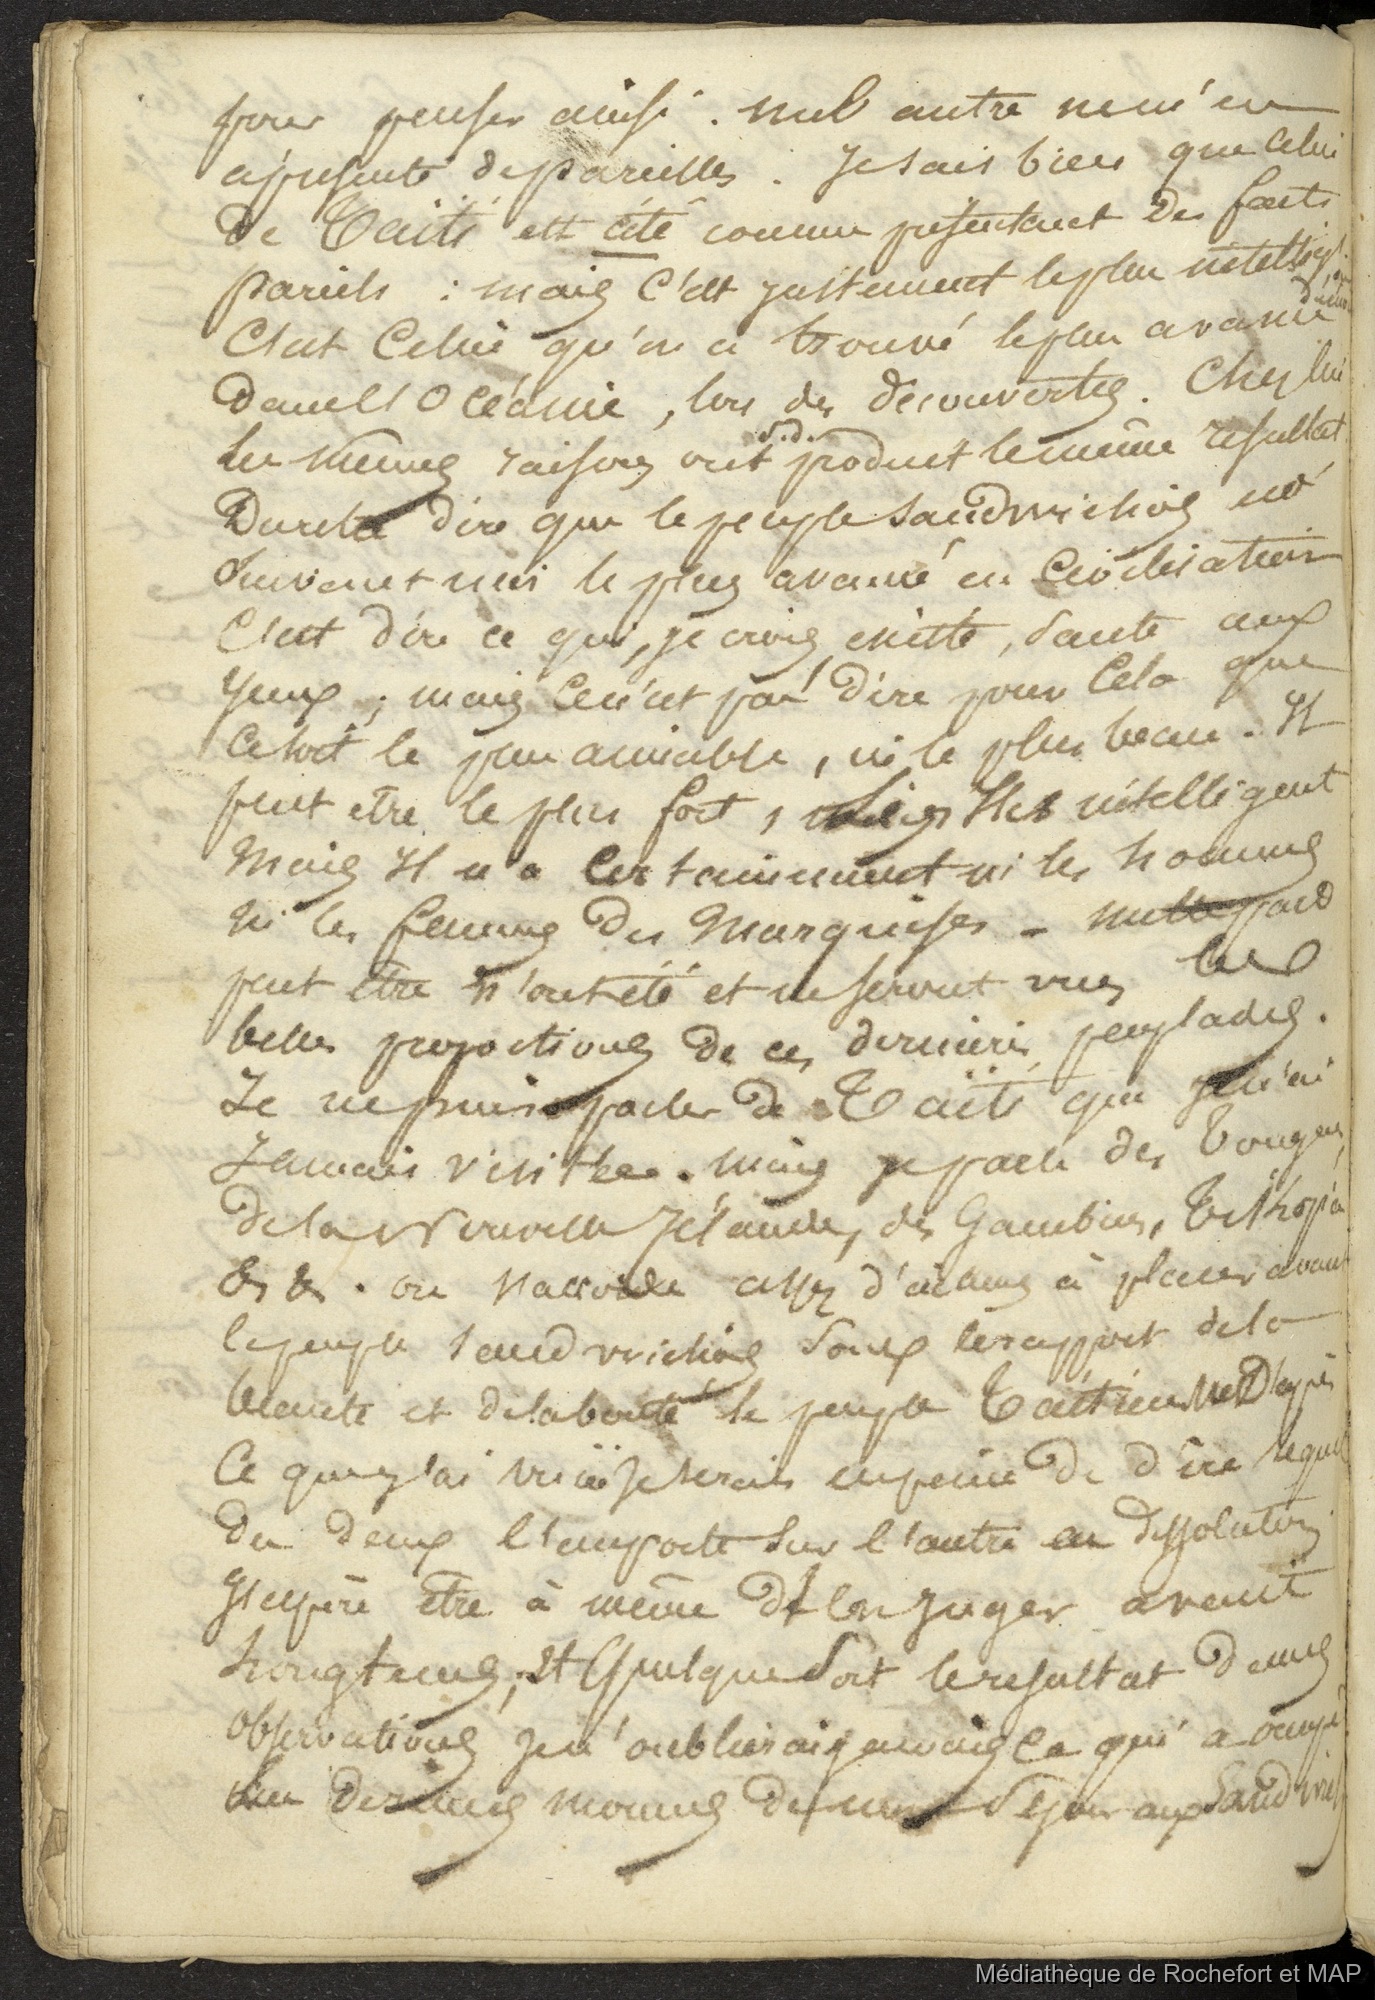 pour penser ainsi. nul autre ne m'en
a présenté de pareilles. Je sais bien que celui
de Taïti est cité comme présentant des faits
pareils : mais C'est justement le plus intellig.
C'est Celui qu'on a trouvé le plus avancé
dans l'Océanie, lors des découvertes. Chez lui
les memes raisons ont s.d. produit le même resultat
Dureste dire que le peuple Sandwichois est
suivant moi le plus avancé en Civilisation
C'est dire ce qui, je crois, existe, saute aux
yeux ; mais Ce n'est pas dire pour Cela que
Ce soit le plus aimable, ni le plus beau. Il
peut etre le plus fort, intelligent
Mais Il n'a Certainement ni les hommes
ni les femmes des Marquises - nulle part
peut être n'ont été et ne seront vues les
belles proportions de ces dernières peuplades.
Je ne puis parler de Taïti que je n'ai
Jamais visitée. mais je parle des Tongas,
de la Nouvelle Zélande, des Gambier, Tikopia
&. &. on s'accorde assez d'ailleurs à placer avant
le peuple Sandwichois sous le rapport de la
beauté et de la bonté le peuple Taïtien. D'après
Ce que j'ai vu je serais en peine de dire lequel
des deux l'emporte sur l'autre en dissolution.
J'espère être à même de en juger avant
longtemps, et quelque soit le resultat de mes
observations je n'oublierai jamais ce qui a occupé
les derniers momens de mon séjour aux Sandwich